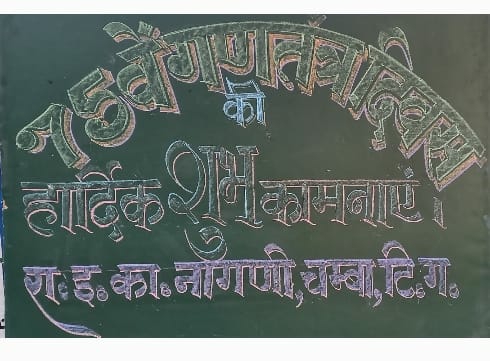 75वें गणतंत्र दिवस
की
हार्दिक शुभ कामनाएं।
रा.इ.का. नागणी, चम्बा, टि.ग.